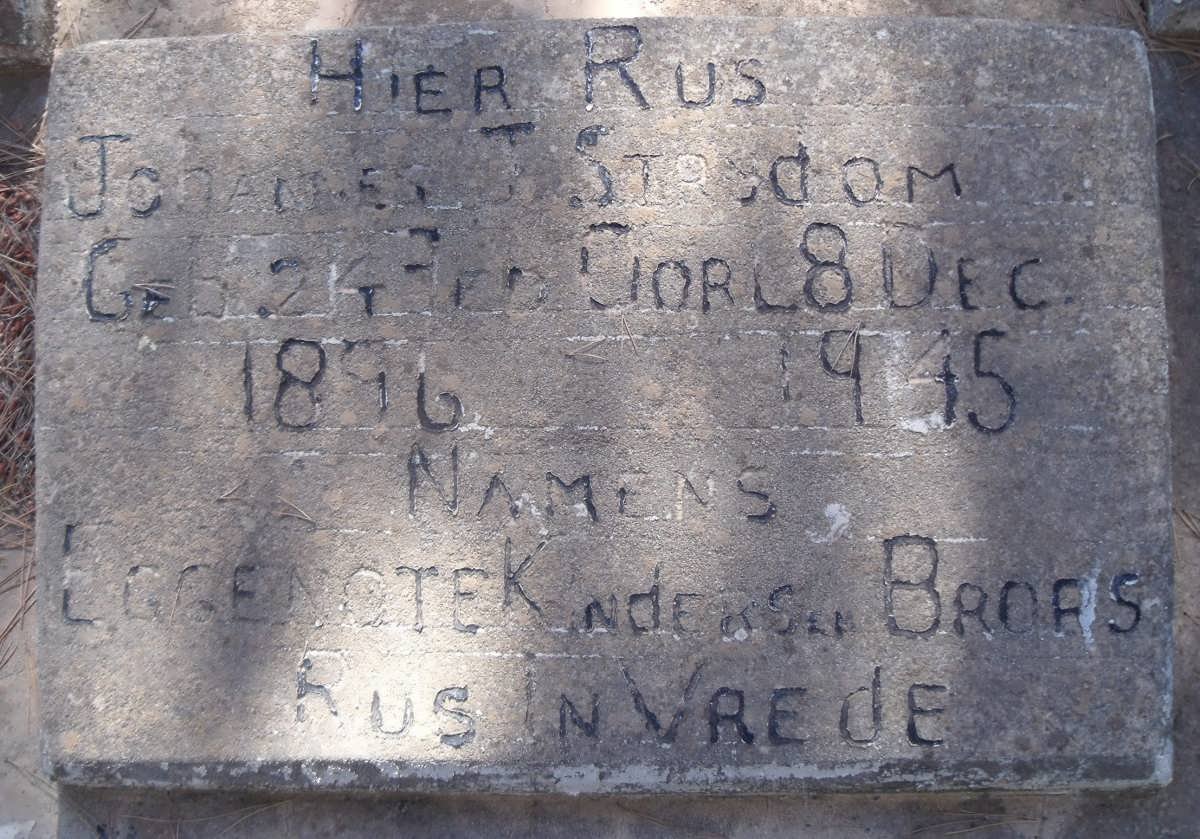 HIER RUS
JOHANNES J STRYdOM
GEB. 24 FEB OORL 8 DEC.
1896 1945
NAMENS
EGGENOTE KINdERS EN BROERS
RUS IN VREdE